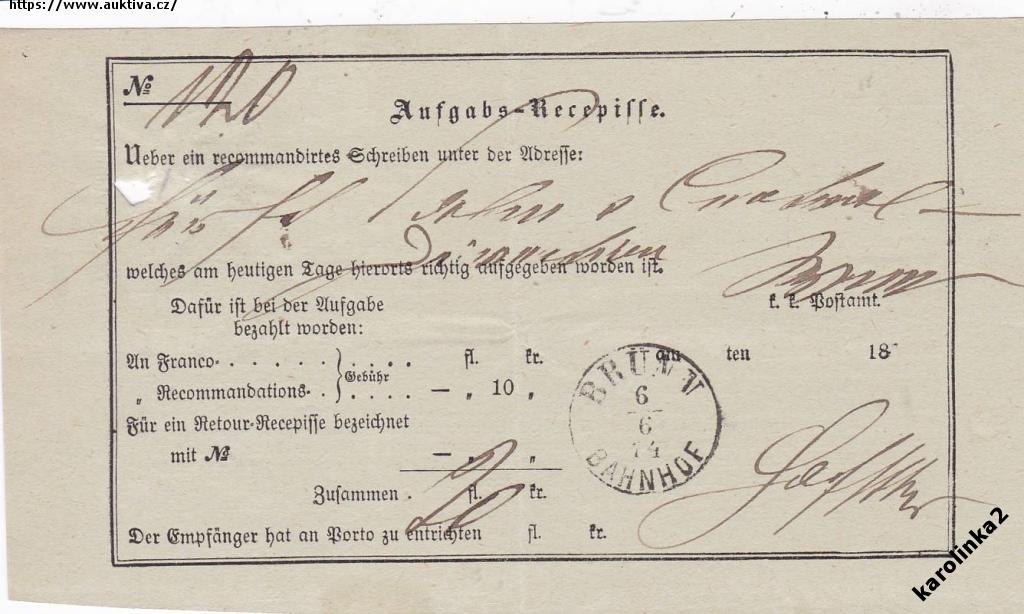 https://www.auktiva.cz/
№ 120
Aufgabs-Recepisse.
Ueber ein recommandirtes Schreiben unter der Adresse:
welches am heutigen Tage hierorts richtig aufgegeben worden ist.
k. k. Postamt.
Dafür ist bei der Aufgabe
bezahlt worden:
An Franco . . . . . . . . . . fl. kr.
„ Recommandations . . . . . . — „ 10 „
Gebühr
am ten 18
Für ein Retour-Recepisse bezeichnet
mit № — „ „
Zusammen . fl. kr.
20
Der Empfänger hat an Porto zu entrichten fl. kr.
BRÜNN
6
6
74
BAHNHOF
karolinka2